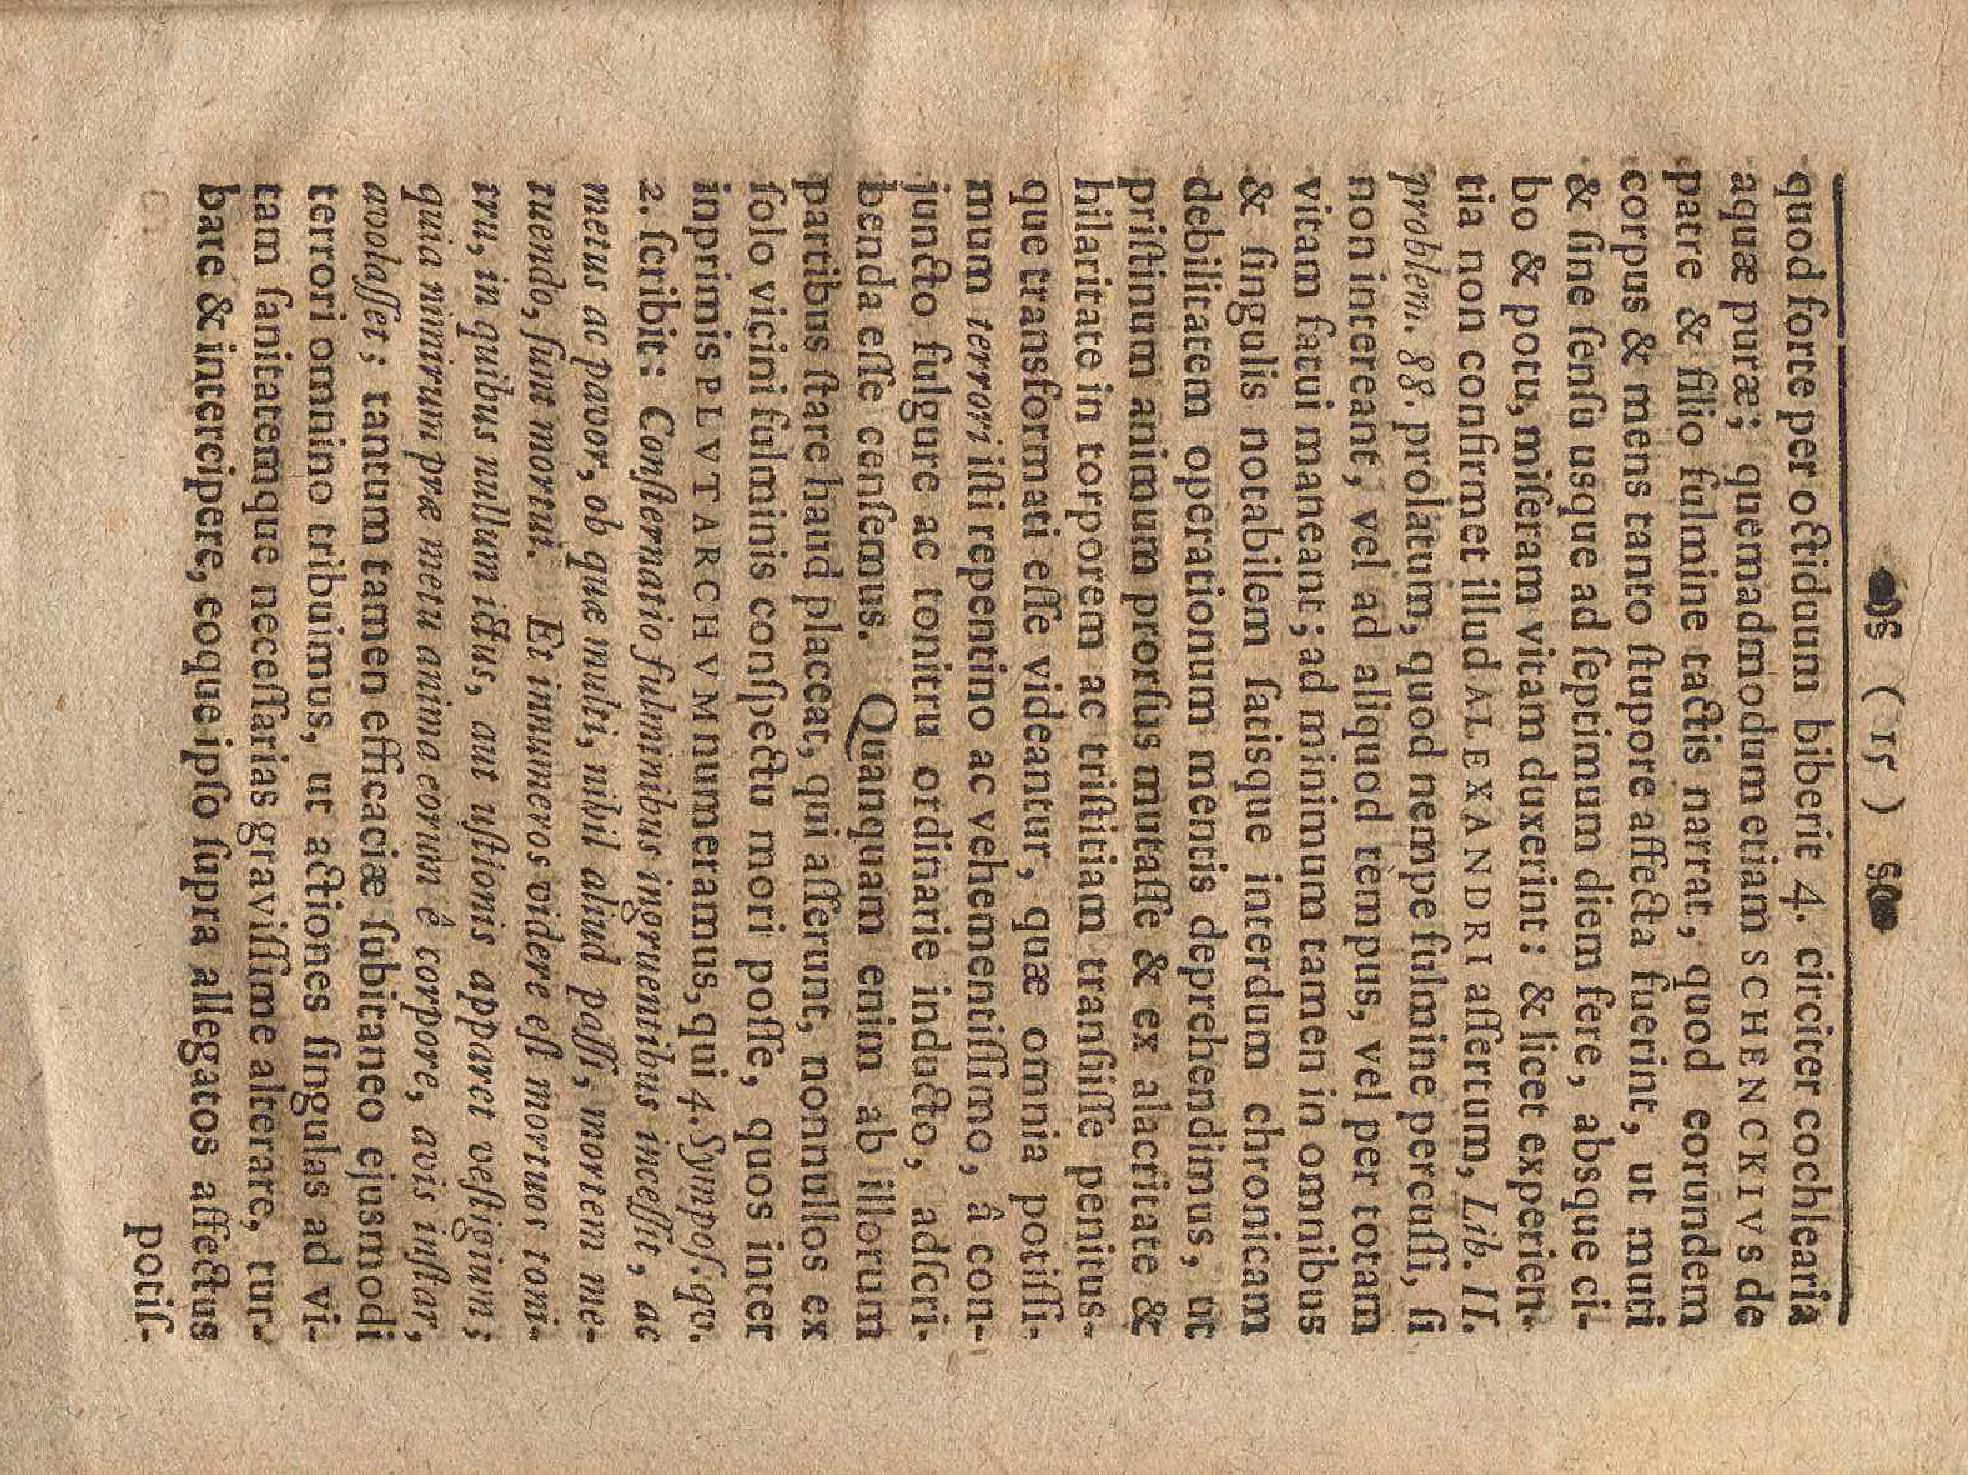 ( 15 )
quod forte per octiduum biberit 4. circiter cochlearia
aquæ puræ; quemadmodum etiam SCHENCKIVS de
patre & filio fulmine tactis narrat, quod eorundem
corpus & mens tanto ſtupore affecta fuerint, ut muti
& ſine ſenſu usque ad ſeptimum diem fere, absque ci-
bo & potu, miſeram vitam duxerint: & licet experien-
tia non confirmet illud ALEXANDRI aſſertum, Lib. II.
problem. 88. prolatum, quod nempe fulmine percuſſi, ſi
non intereant, vel ad aliquod tempus, vel per totam
vitam fatui maneant; ad minimum tamen in omnibus
& ſingulis notabilem ſatisque interdum chronicam
debilitatem operationum mentis deprehendimus, ut
priſtinum animum prorſus mutaſſe & ex alacritate &
hilaritate in torporem ac triſtitiam tranſiiſſe penitus-
que transformati eſſe videantur, quæ omnia potiſſi-
mum terrori iſti repentino ac vehementiſſimo, â con-
juncto fulgure ac tonitru ordinarie inducto, adſcri-
benda eſſe cenſemus. Quanquam enim ab illorum
partibus ſtare haud placeat, qui aſſerunt, nonnullos ex
ſolo vicini fulminis conſpectu mori poſſe, quos inter
inprimis PLVTARCHVM numeramus, qui 4. Sympoſ. qv.
2. ſcribit: Conſternatio fulminibus ingruentibus inceſſit, ac
metus ac pavor, ob quæ multi, nihil aliud paſſi, mortem me-
tuendo, ſunt mortui. Et innumeros videre eſt mortuos toni-
tru, in quibus nullum ictus, aut uſtionis apparet veſtigium;
quia nimirum præ metu anima eorum ê corpore, avis inſtar,
avolaſſet; tantum tamen efficaciæ ſubitaneo ejusmodi
terrori omnino tribuimus, ut actiones ſingulas ad vi-
tam ſanitatemque neceſſarias graviſſime alterare, tur-
bare & intercipere, eoque ipſo ſupra allegatos affectus
potiſ-